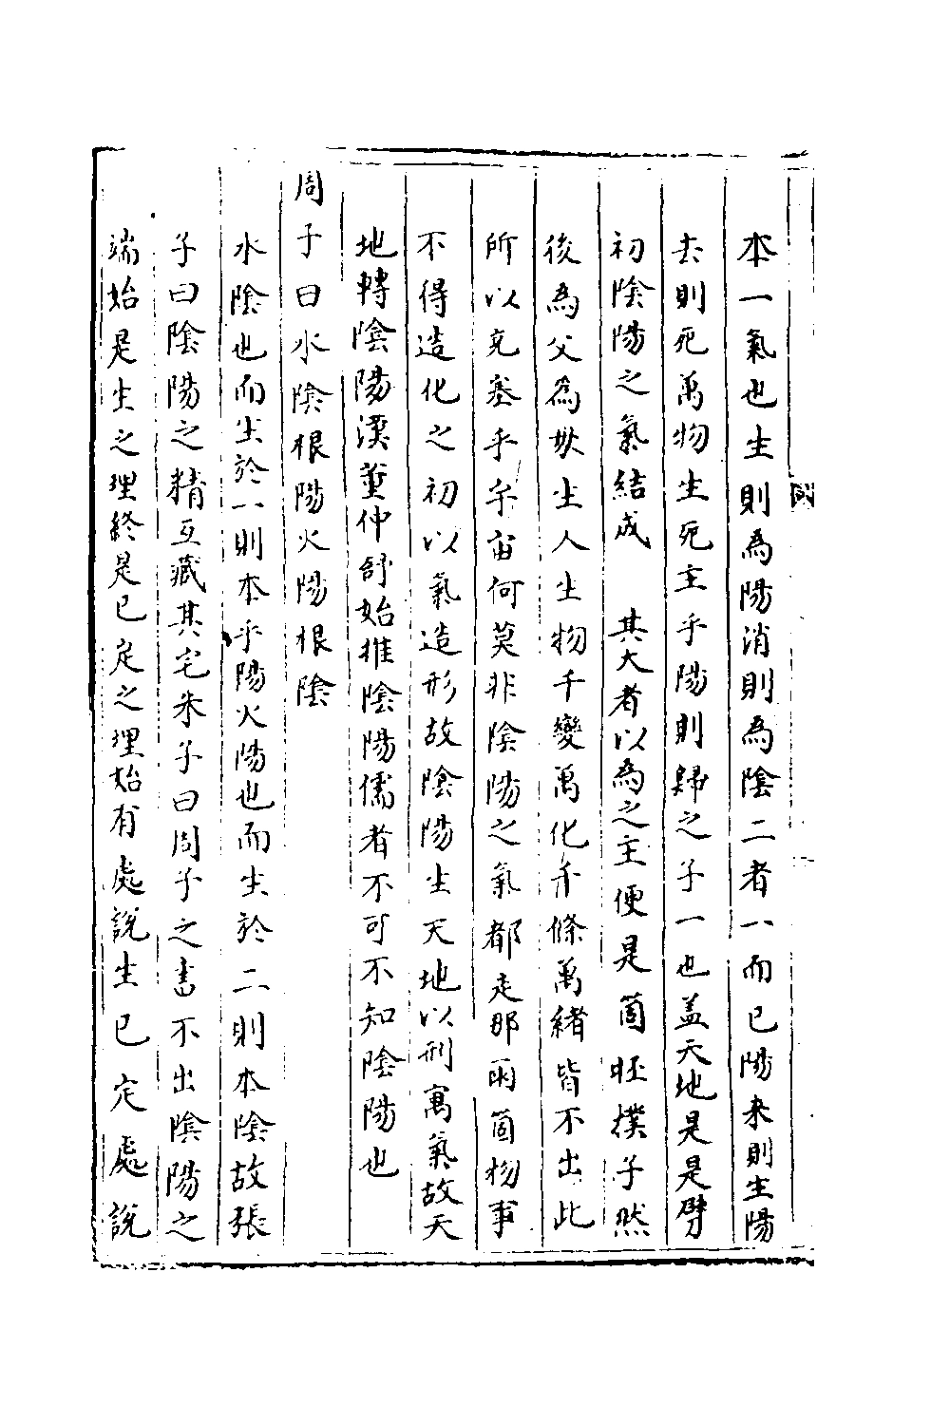 本一氣也生則為陽消則為陰二者一而已陽来則生陽
去則死萬物生死主乎陽則歸之子一也盖天地是是劈
初陰陽之氣結成　其大者以為之主便是箇胚樸子然
後為父為母生人生物千變萬化千條萬緒皆不出此
所以充塞乎宇宙何莫非陰陽之氣都走那兩箇物事
不得造化之初以氣造形故陰陽生天地以形寓氣故天
地轉陰陽漢董仲舒始推陰陽儒者不可不知陰陽也
周子曰水陰根陽火陽根陰
水陰也而生於一則本乎陽火陽也而生於二則本陰故張
子曰陰陽之精互藏其宅朱子曰周子之書不出陰陽之
端始是生之理終是已定之理始有處說生已定處說